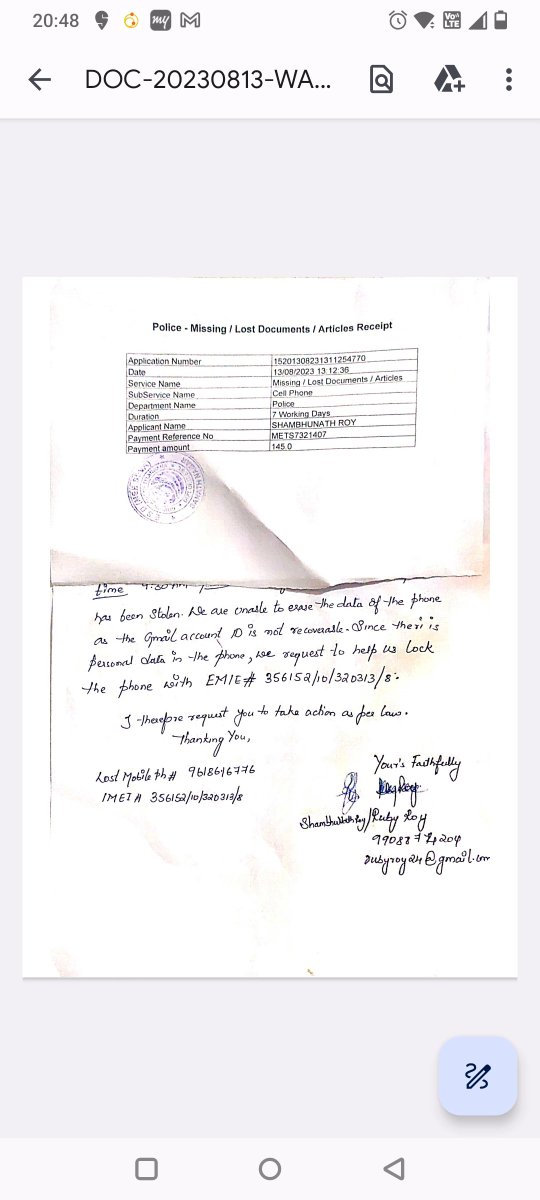 20:48
my
Vo))
LTE
DOC-20230813-WA...
Police - Missing / Lost Documents / Articles Receipt
Application Number 15201308231311254770
Date 13/08/2023 13:12:36
Service Name Missing / Lost Documents / Articles
SubService Name Cell Phone
Department Name Police
Duration 7 Working Days
Applicant Name SHAMBHUNATH ROY
Payment Reference No METS7321407
Payment amount 145.0
time
has been Stolen. We are unable to erase the data of the phone
as the Gmail account ID is not recoverable. Since their is
personal data in the phone, we request to help us lock
the phone with EMIE# 356152/10/320313/8.
I therefore request you to take action as per law.
Thanking You,
Your's Faithfully
Lost Mobile ph# 9618616776
IMEI# 356152/10/320313/8
Shambhunath Roy/Ruby Roy
rubyroy24@gmail.com